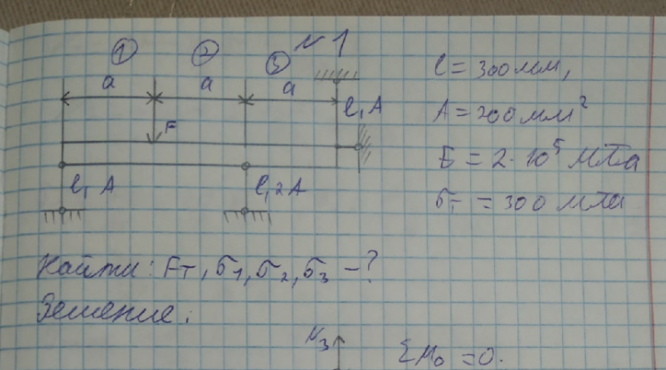 ① ② ③ № 1
a a a
F
l, A
l, A l, 2A
l = 300 мм,
A = 200 мм²
E = 2·10⁵ МПа
σт = 300 МПа
Найти: Fт, σ1, σ2, σ3 – ?
Решение:
N3 ΣM0 = 0.